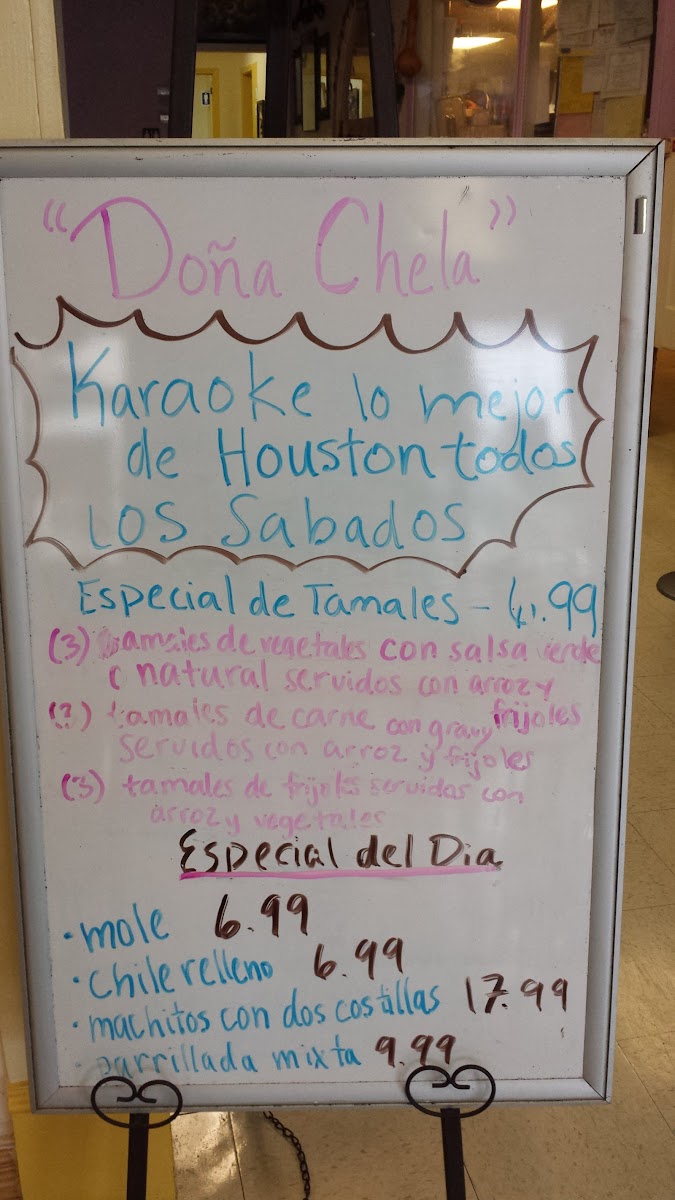 "Doña Chela"
Karaoke lo mejor
de Houston todos
Los Sabados
Especial de Tamales - 6.99
(3) tamales de vegetales con salsa verde
o natural servidos con arroz y
frijoles
(3) tamales de carne con gravy
servidos con arroz y frijoles
(3) tamales de frijoles servidos con
arroz y vegetales
Especial del Dia
· mole 6.99
· chile relleno 6.99
· machitos con dos costillas 17.99
· parrillada mixta 9.99